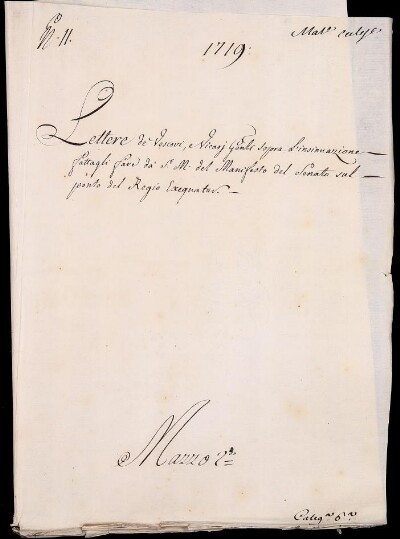 N. 11.
Mat.e eccl.e
1719.
Lettere de' Vescovi, e Vicarj Gñali sopra l'insinuazione
fattagli fare da S. M. del Manifesto del Senato sul
ponto del Regio Exequatur.
Mazzo 2.do
Categ.a 6.a